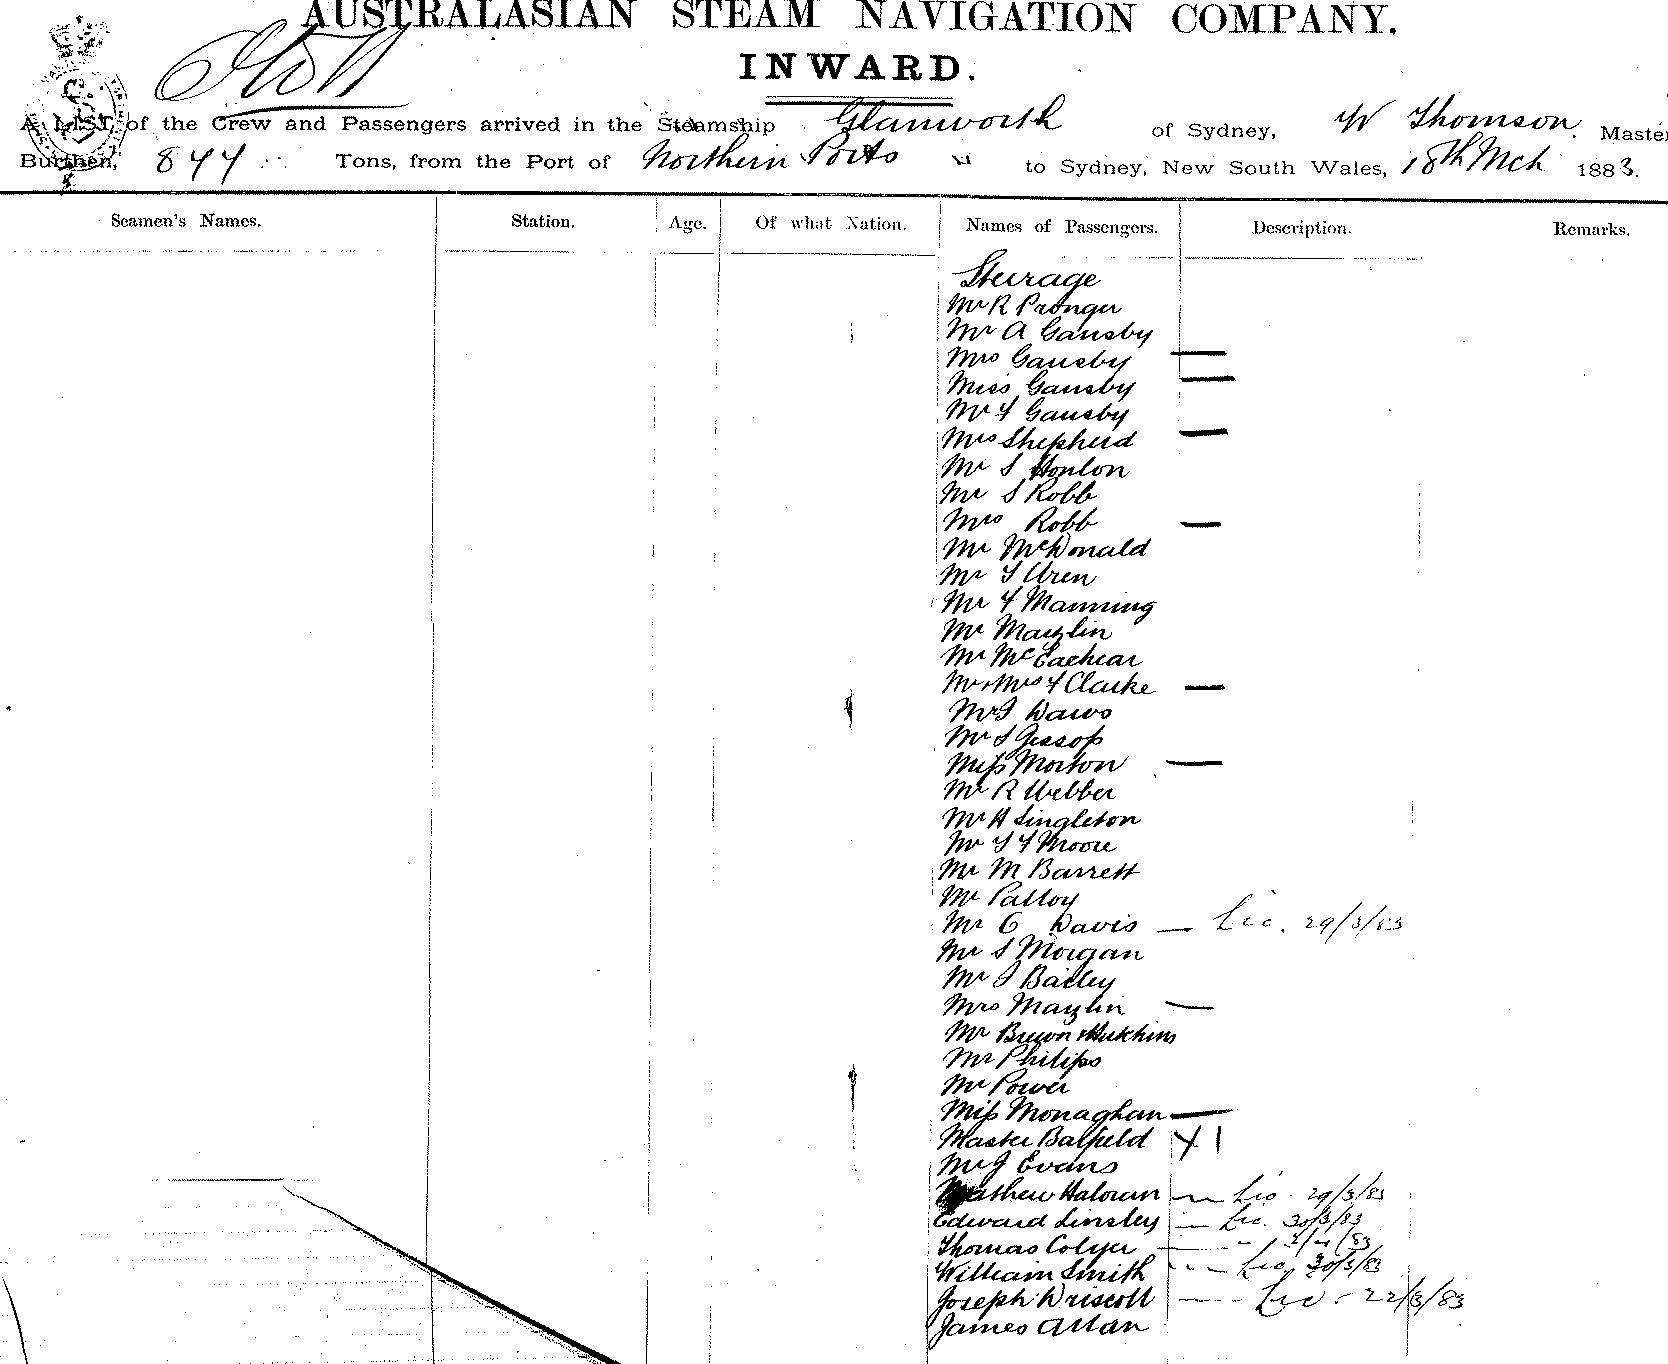 AUSTRALASIAN STEAM NAVIGATION COMPANY.
INWARD.
A LIST of the Crew and Passengers arrived in the Steamship Glanworth of Sydney, W Thomson Master
Burthen, 844 Tons, from the Port of Northern Ports to Sydney, New South Wales, 18th Mch 1883.
Seamen's Names. Station. Age. Of what Nation. Names of Passengers. Description. Remarks.
Steerage
Mr R Pronger
Mr A Gansby
Mrs Gansby —
Miss Gansby —
Mr F Gansby
Mrs Shepherd —
Mr S Honlon
Mr S Robb
Mrs Robb —
Mr McDonald
Mr T Uren
Mr F Manning
Mr Mayzlin
Mr McEachear
Mr & Mrs F Clarke —
Mr J Daws
Mr S Jessop
Miss Morton —
Mr R Webber
Mr H Singleton
Mr T F Moore
Mr M Barrett
Mr Palloy
Mr C Davis — Lic. 29/3/83
Mr S Morgan
Mr J Bailey
Mrs Mayzlin —
Mr Brown & Hutchins
Mr Philips
Mr Power
Miss Monaghan —
Master Batfield
Mr J Evans
Mathew Halown — Lic. 29/3/83
Edward Linsley — Lic. 30/3/83
Thomas Colyer — 2/4/83
William Smith — Lic. 30/3/83
Joseph Driscoll — Lic. 22/3/83
James Allan